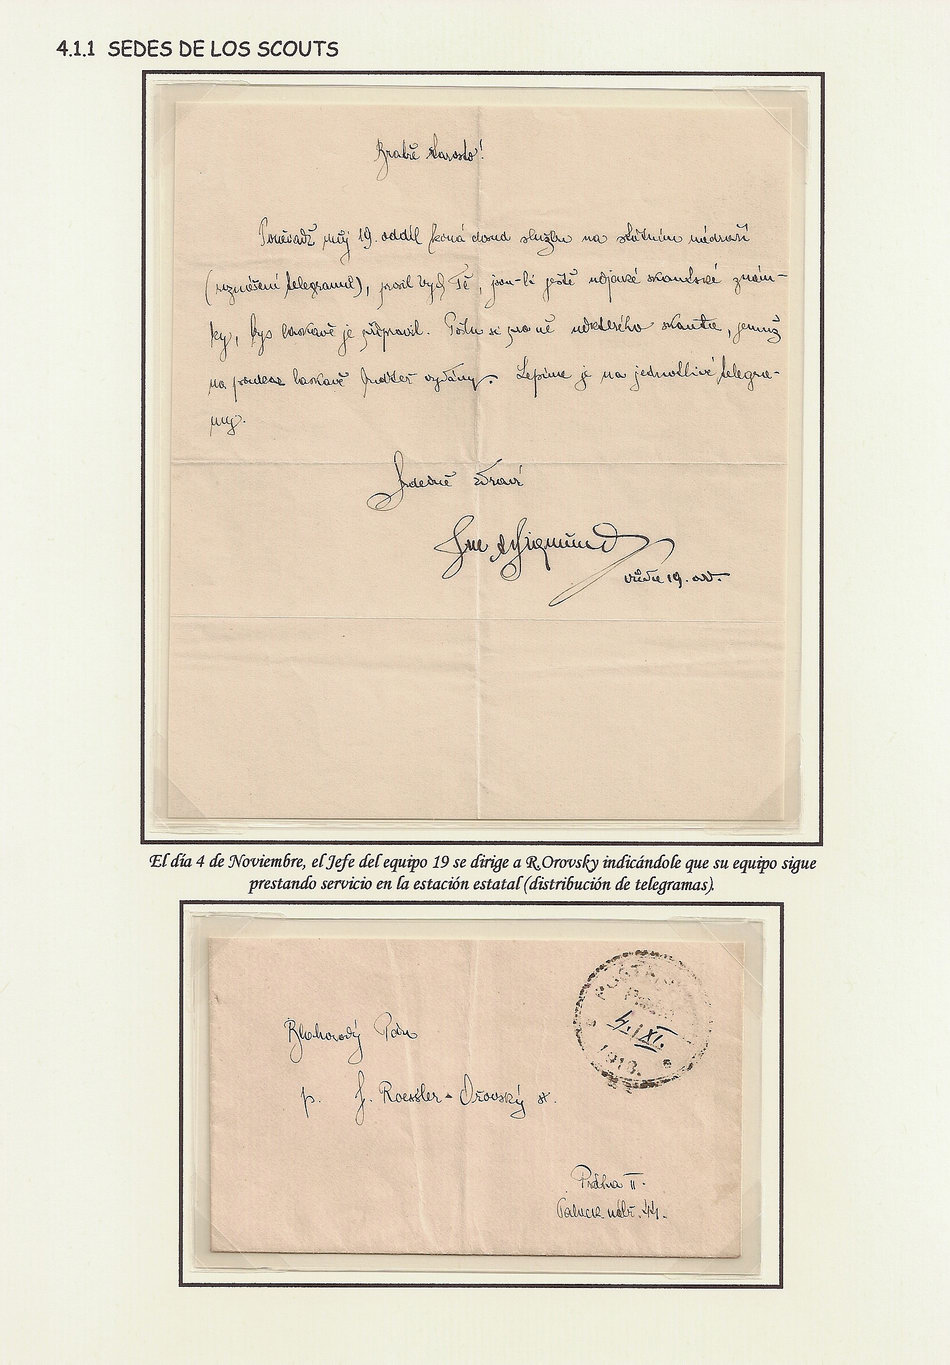 4.1.1 SEDES DE LOS SCOUTS
Bratře starosto!
Poněvadž můj 19. oddíl koná dosud službu na státním nádraží
(roznášení telegramů), prosil bych Tě, jsou-li ještě nějaké skautské znám-
ky, bys laskavě je připravil. Pošlu si pro ně některého skauta, jemuž
na průkaz laskavě buďtež vydány. Lepíme je na jednotlivé telegra-
my.
Srdečné zdraví
Sigmund
vůdce 19. odd.
El día 4 de Noviembre, el Jefe del equipo 19 se dirige a R.Orovsky indicándole que su equipo sigue
prestando servicio en la estación estatal (distribución de telegramas).
4. XI.
1918.
Blahorodý Pán
p. J. Roessler-Ořovský st.
Praha II.
Palack. nábř. 44.